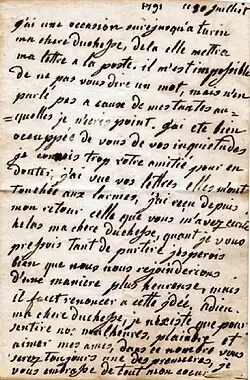 1791 ce 30 juillet
j'ai une occasion sure jusqu'a turin
ma chere duchesse, de la elle mettra
ma lettre a la poste. il m'est impossible
de ne pas vous dire un mot, mais n'en
parlé pas a cause de mes tantes au=
=quelles je n'ecris point, j'ai eté bien
occuppée de vous de vos inquietudes
je connois trop votre amitié pour en
douter, j'ai vue vos lettres elles m'ont
touchée aux larmes, j'ai reçu depuis
mon retour celle que vous m'avez ecrite
helas ma chere duchesse, quand je vous
pressois tant de partir j'esperois
bien que nous nous rejoinderions
d'une manière plus heureuse, mais
il faut renoncer a cette idée adieu
ma chere duchesse, je n'existe que pour
sentire nos malheures, plaindre et
aimer mes amis, dans ce nombre vous
serez toujours une des premieres, je
vous embrasse de tout mon coeur